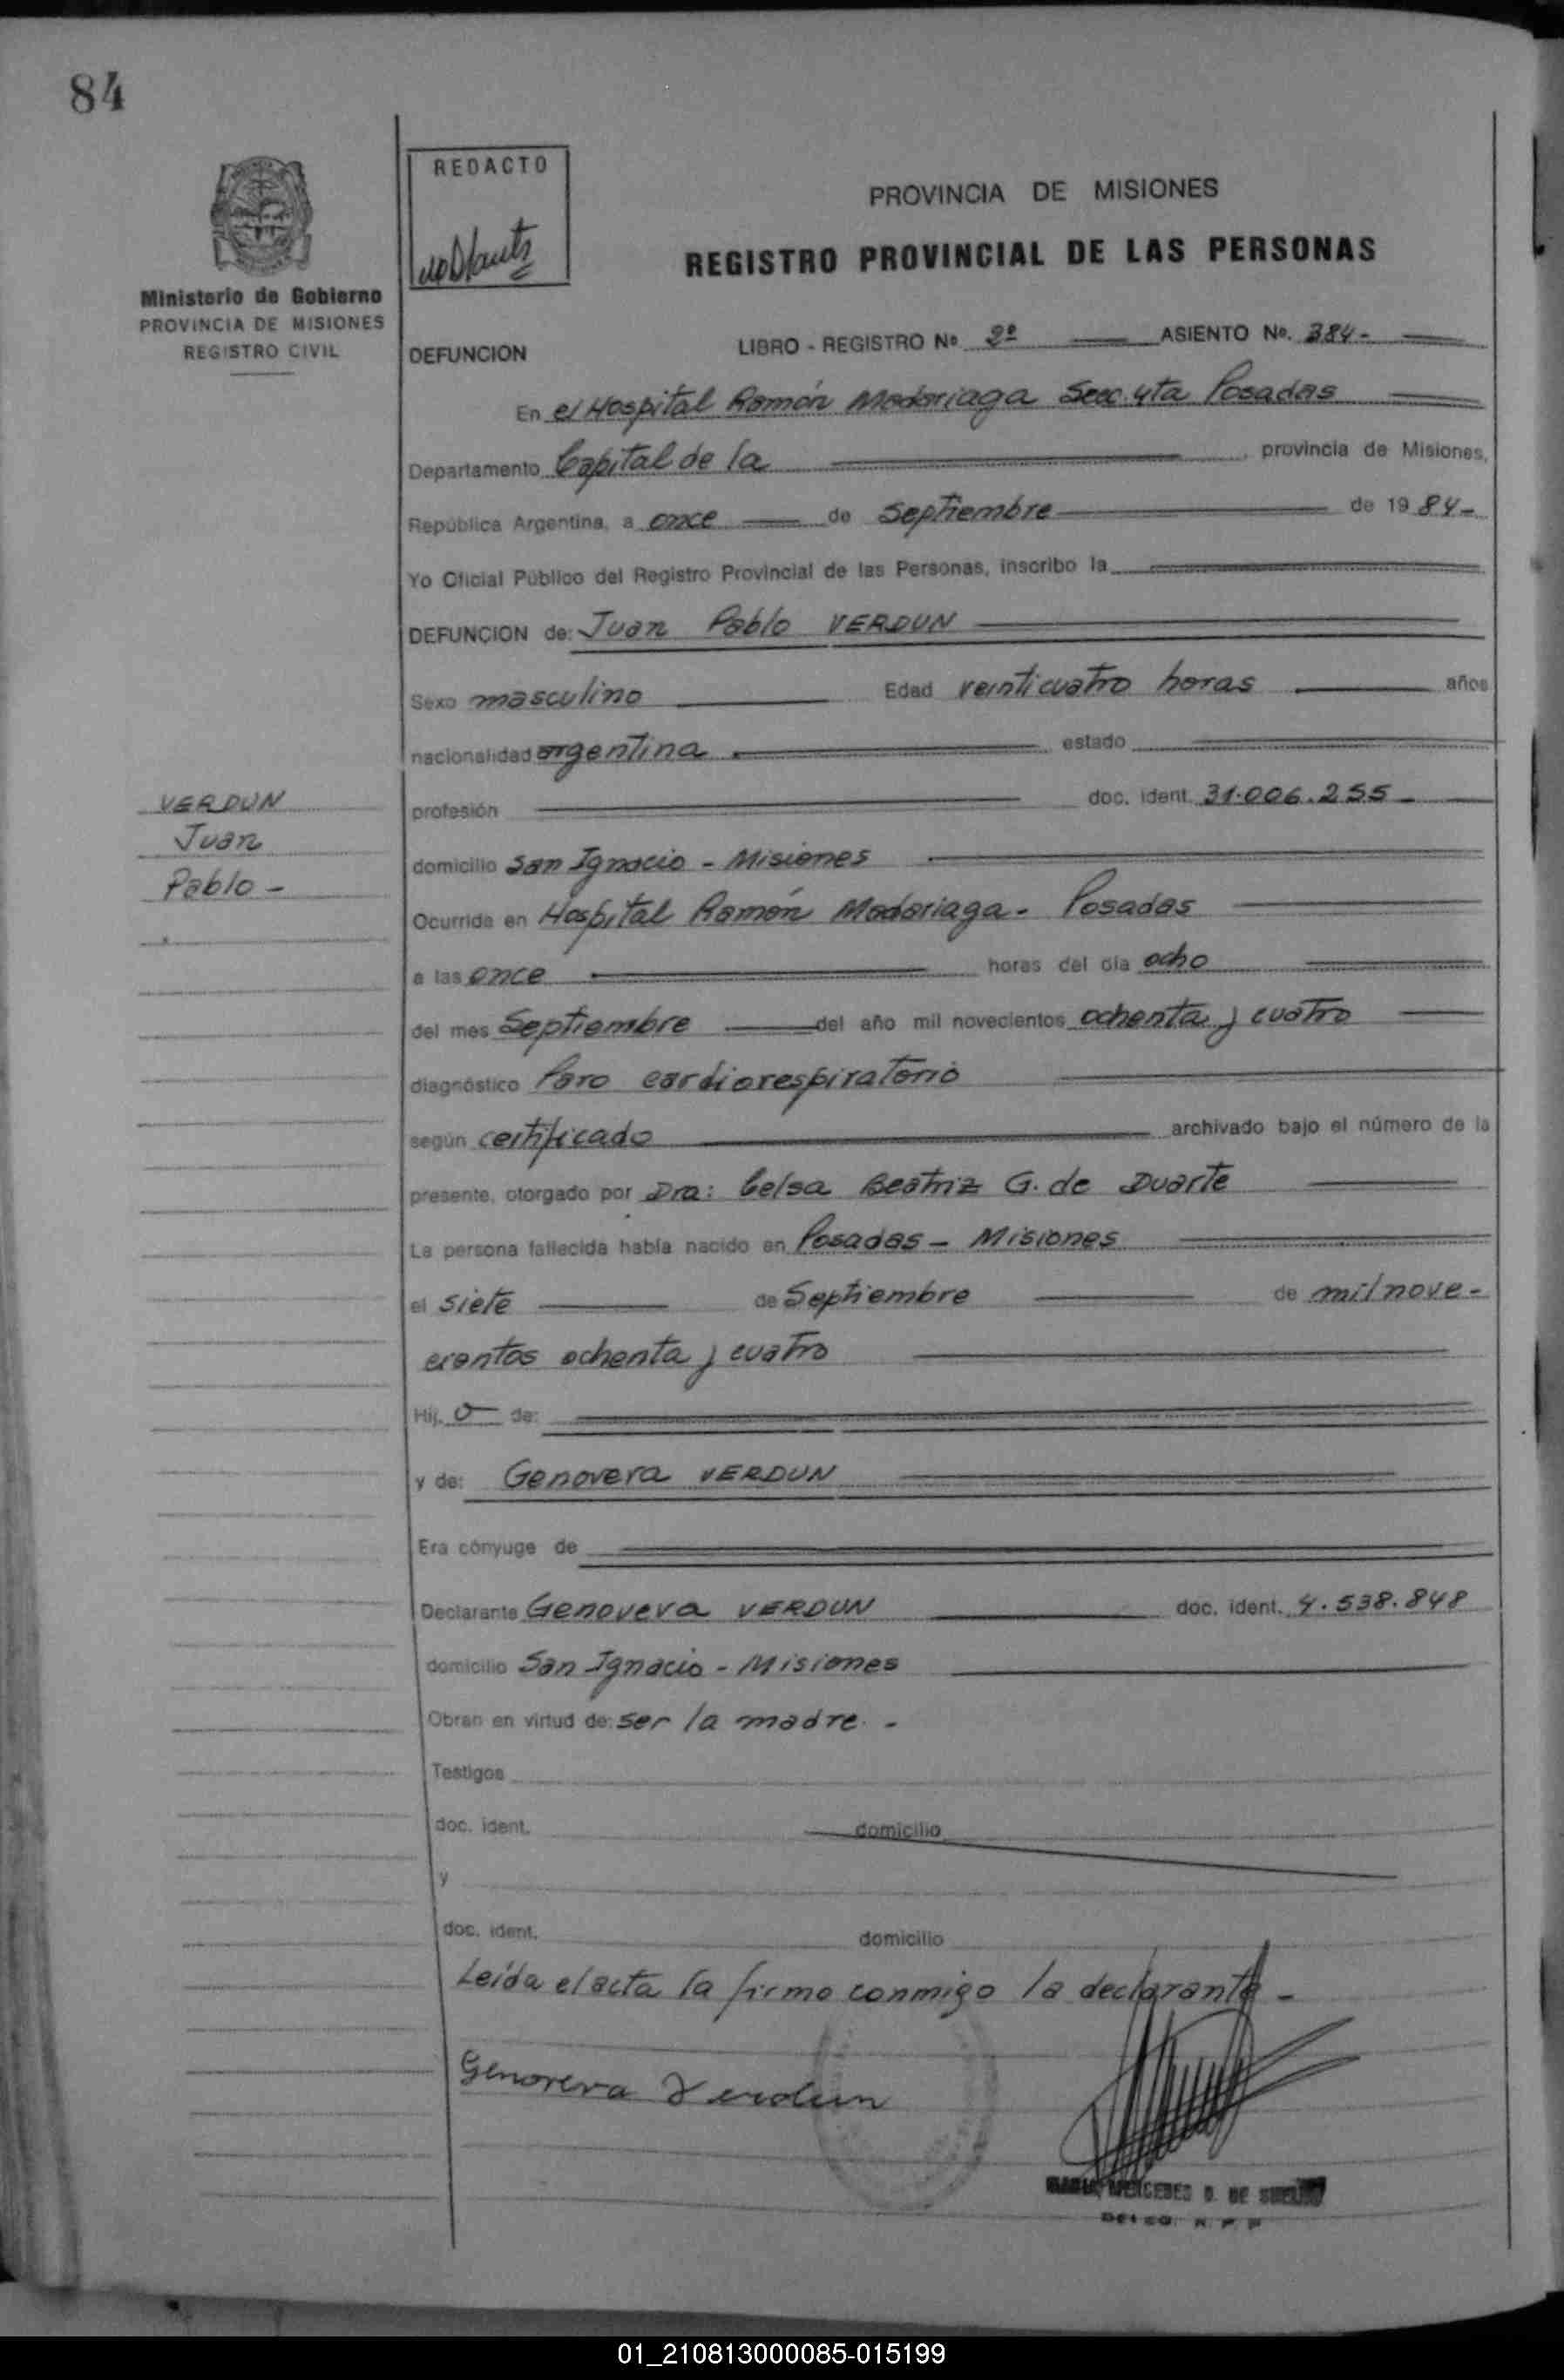 84
REDACTO
PROVINCIA DE MISIONES
REGISTRO PROVINCIAL DE LAS PERSONAS
Ministerio de Gobierno
PROVINCIA DE MISIONES
REGISTRO CIVIL
DEFUNCION LIBRO - REGISTRO Nº 2º ASIENTO Nº. 384-
En el Hospital Ramón Madariaga Secc. 4ta Posadas
Departamento Capital de la , provincia de Misiones,
República Argentina, a once de Septiembre de 1984-
Yo Oficial Público del Registro Provincial de las Personas, inscribo la
DEFUNCION de: Juan Pablo VERDUN
Sexo masculino Edad veinticuatro horas años
nacionalidad argentina estado
VERDUN
Juan
Pablo -
profesión doc. ident. 31.006.255-
domicilio San Ignacio - Misiones
Ocurrida en Hospital Ramón Madariaga - Posadas
a las once horas del día ocho
del mes Septiembre del año mil novecientos ochenta y cuatro
diagnóstico Paro cardiorespiratorio
según certificado archivado bajo el número de la
presente, otorgado por Dra: Celsa Beatriz G. de Duarte
La persona fallecida había nacido en Posadas - Misiones
el siete de Septiembre de mil nove-
cientos ochenta y cuatro
Hij. o de:
y de: Genoveva VERDUN
Era cónyuge de
Declarante Genoveva VERDUN doc. ident. 4.538.848
domicilio San Ignacio - Misiones
Obran en virtud de: ser la madre. -
Testigos
doc. ident. domicilio
y
doc. ident. domicilio
Leída el acta la firma conmigo la declarante -
Genoveva Verdun
MARIA MERCEDES D. DE
01_210813000085-015199